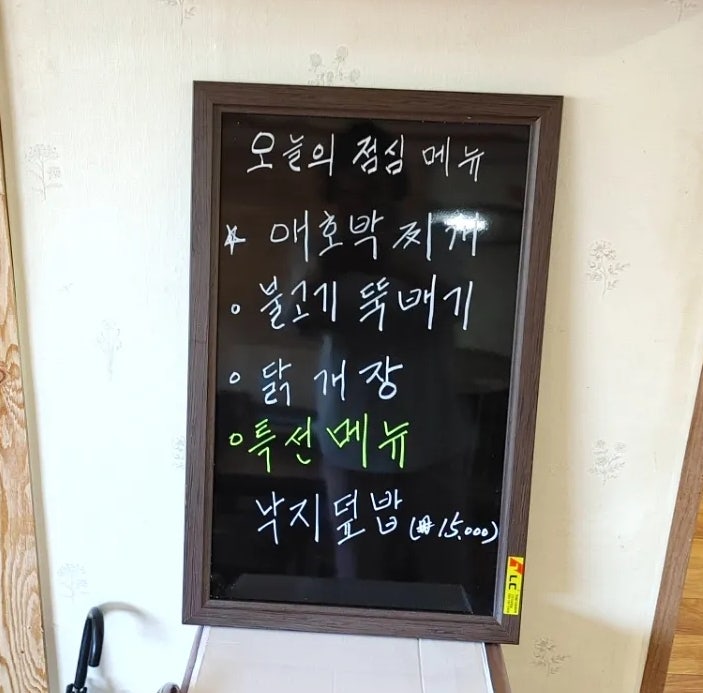 오늘의 점심 메뉴
☆ 애호박 찌개
○ 불고기 뚝배기
○ 닭개장
○ 특선메뉴
낙지덮밥 (₩15.000)
LC